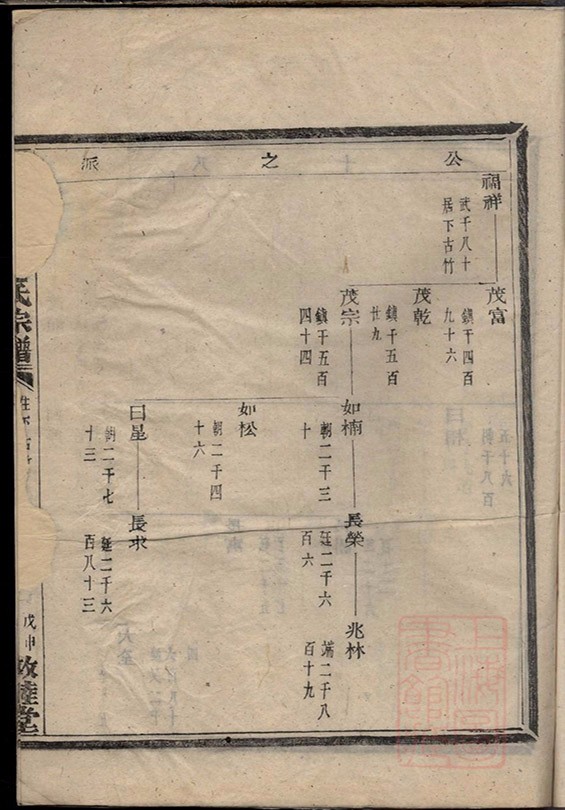 公之派
福祥
武千八十
居下古竹
茂富
鎮千四百
九十六
茂乾
鎮千五百
廿九
茂宗
鎮千五百
四十四
如楠
朝二千三
十
長榮
廷二千六
百六
兆林
端二千八
百十九
如松
朝二千四
十六
曰星
朝二千七
十三
長求
廷二千六
百八十三
氏宗譜
戊申
敦睦堂